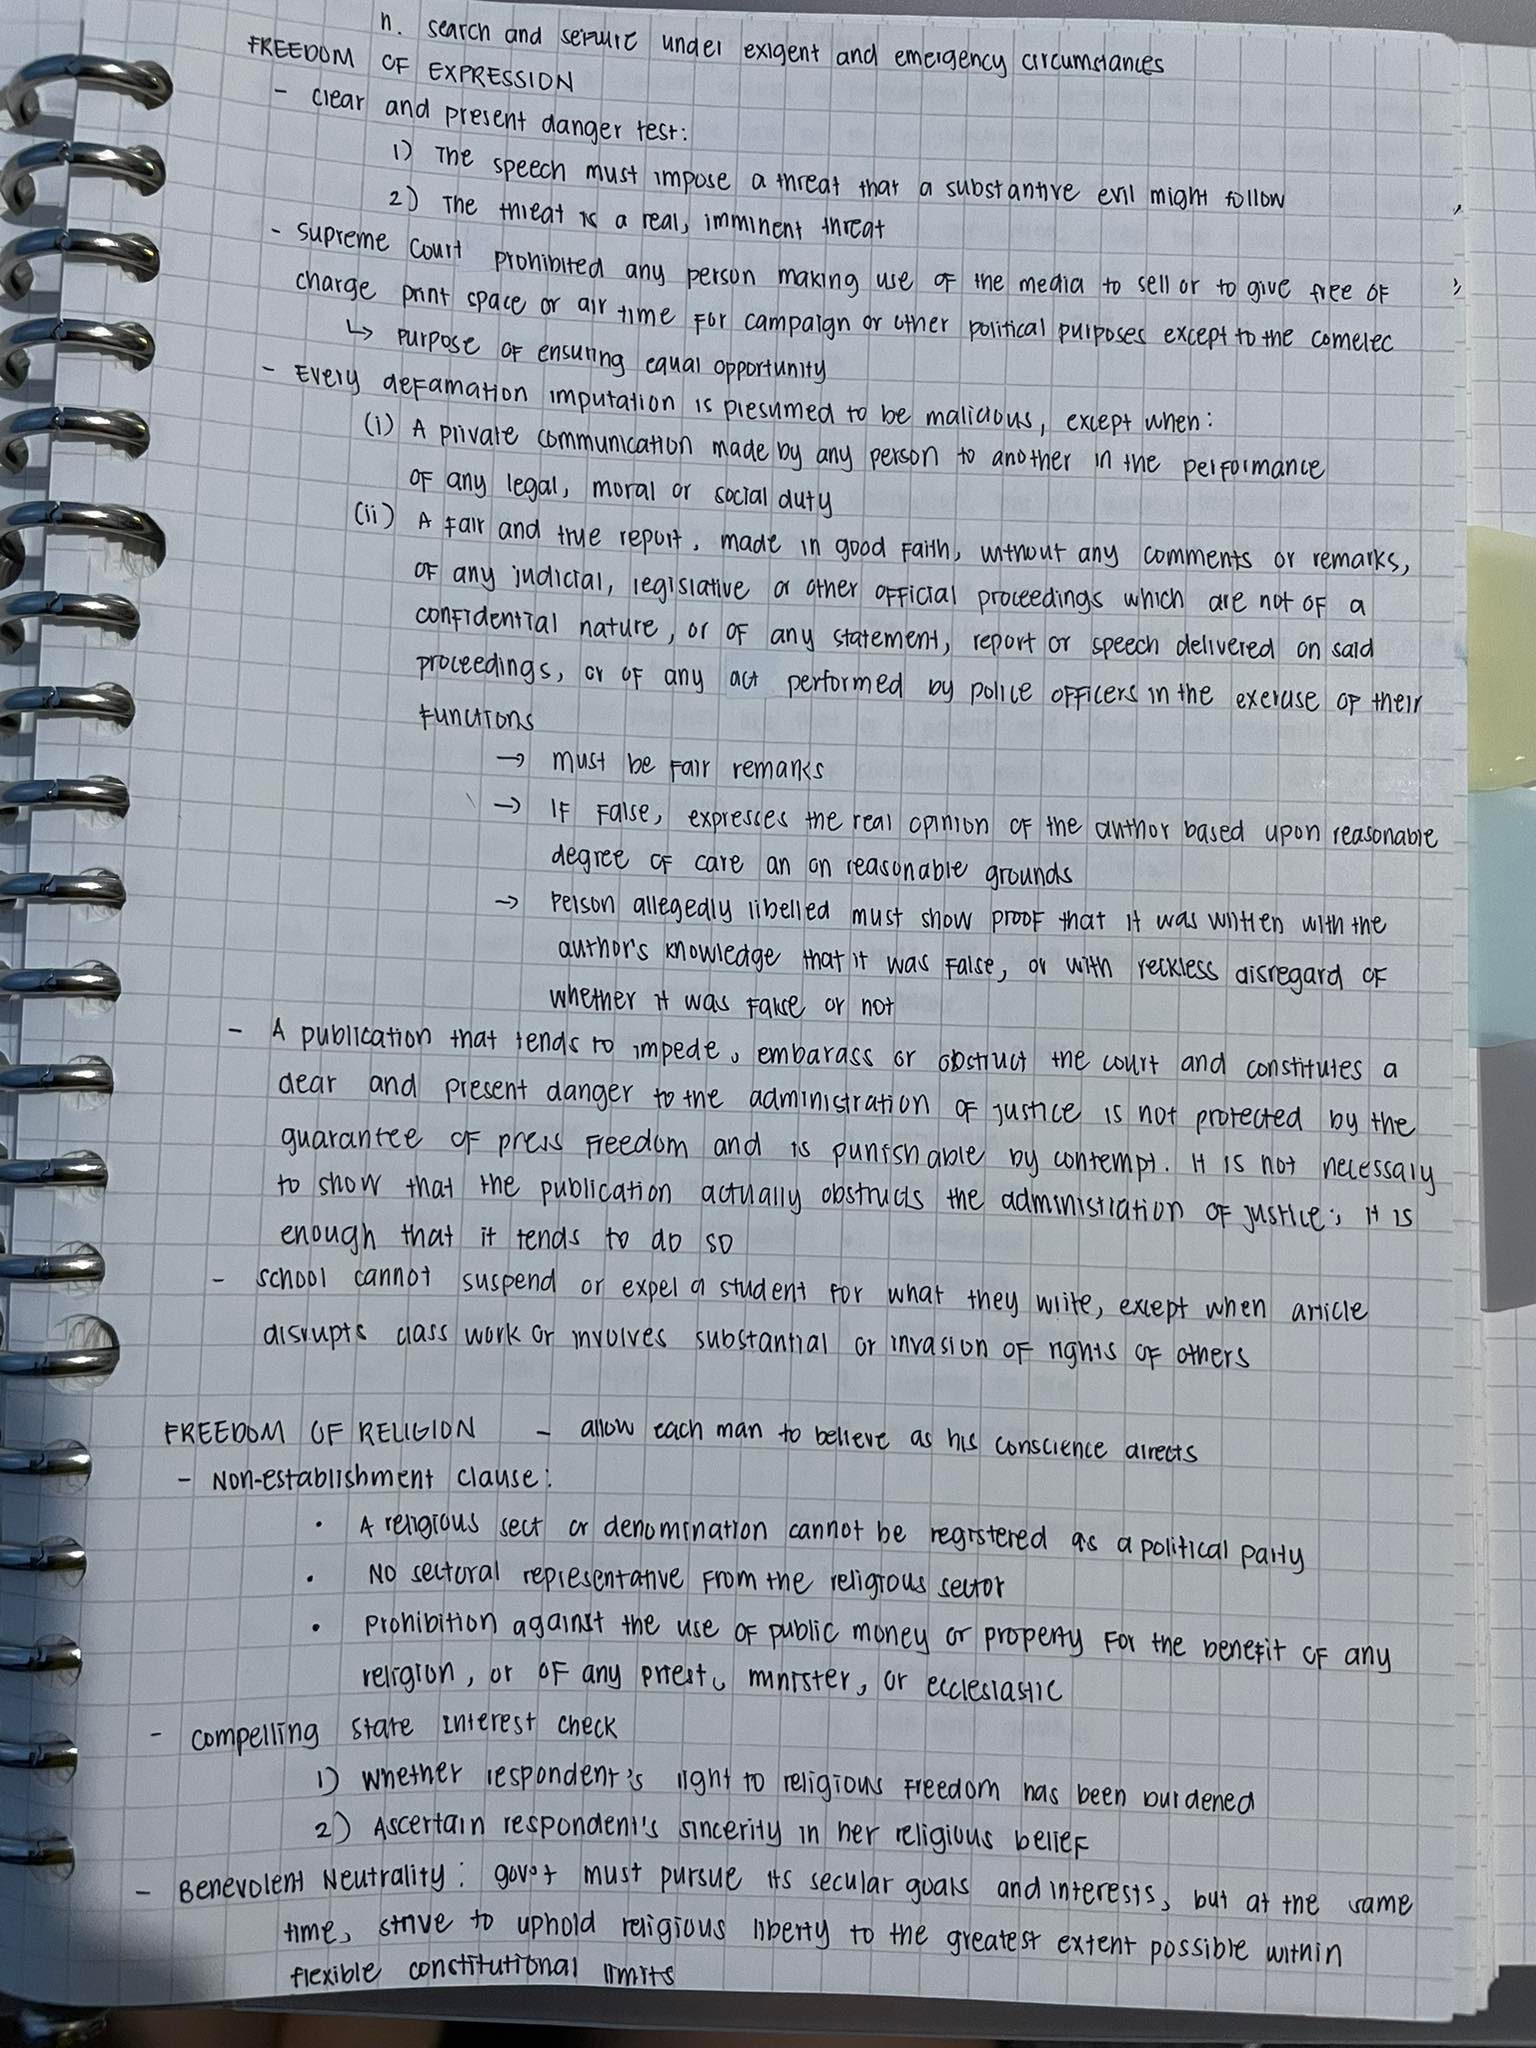 n. search and seizure under exigent and emergency circumstances
FREEDOM OF EXPRESSION
- clear and present danger test:
1) The speech must impose a threat that a substantive evil might follow
2) The threat is a real, imminent threat
- Supreme Court prohibited any person making use of the media to sell or to give free of
charge print space or air time for campaign or other political purposes except to the comelec
↳ purpose of ensuring equal opportunity
- Every defamation imputation is presumed to be malicious, except when:
(i) A private communication made by any person to another in the performance
of any legal, moral or social duty
(ii) A fair and true report, made in good faith, without any comments or remarks,
of any judicial, legislative or other official proceedings which are not of a
confidential nature, or of any statement, report or speech delivered on said
proceedings, or of any act performed by police officers in the exercise of their
functions
→ must be fair remarks
→ If false, expresses the real opinion of the author based upon reasonable
degree of care an on reasonable grounds
→ Person allegedly libelled must show proof that it was written with the
author's knowledge that it was false, or with reckless disregard of
whether it was false or not
- A publication that tends to impede, embarass or obstruct the court and constitutes a
clear and present danger to the administration of justice is not protected by the
guarantee of press freedom and is punishable by contempt. It is not necessary
to show that the publication actually obstructs the administration of justice; it is
enough that it tends to do so
- school cannot suspend or expel a student for what they write, except when article
disrupts class work or involves substantial or invasion of rights of others
FREEDOM OF RELIGION - allow each man to believe as his conscience directs
- Non-establishment clause:
• A religious sect or denomination cannot be registered as a political party
• No sectoral representative from the religious sector
• Prohibition against the use of public money or property for the benefit of any
religion, or of any priest, minister, or ecclesiastic
- compelling state interest check
1) Whether respondent's right to religious freedom has been burdened
2) Ascertain respondent's sincerity in her religious belief
- Benevolent Neutrality: gov't must pursue its secular goals and interests, but at the same
time, strive to uphold religious liberty to the greatest extent possible within
flexible constitutional limits